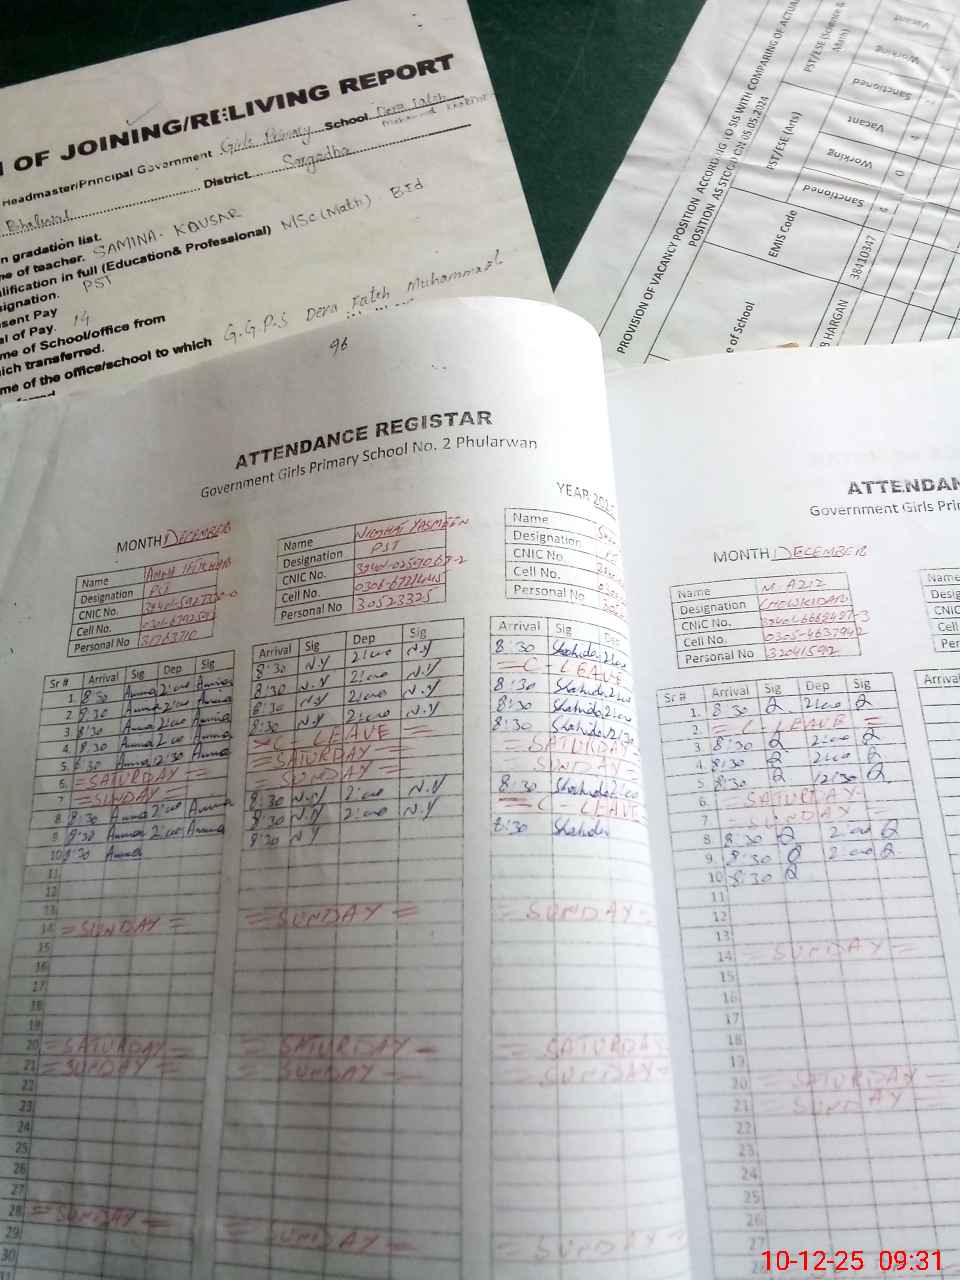 OF JOINING/RELIVING REPORT
Headmaster/Principal Government Girls Primary School Dera Fateh
Muhammad
Bhalwal District Sargodha
n gradation list.
me of teacher. SAMINA KOUSAR
alification in full (Education& Professional) MSc (Math) BEd
signation. PST
sent Pay
al of Pay. 14
me of School/office from
ich transferred. G.G.P.S Dera Fateh Muhammad
me of the office/school to which
PROVISION OF VACCANCY POSITION ACCORDING TO SIS WITH COMPARING OF ACTUAL
POSITION AS STOOD ON 05.05.2024
PST/ESE (Science &
Math)
PST/ESE (Arts)
Vacant
Working
Sanctioned
Vacant
Working
Sanctioned
EMIS Code
e of School
HARGAN 38410347
96
ATTENDANCE REGISTAR
Government Girls Primary School No. 2 Phularwan
YEAR
MONTH DECEMBER
Name
Designation PST
CNIC No.
Cell No.
Personal No
Name YASMEEN
Designation PST
CNIC No.
Cell No.
Personal No 30523325
Name
Designation
CNIC No.
Cell No.
Personal No
Sr # Arrival Sig Dep Sig
1. 8:30 Amna 2:00 Amna
2 8:30 Amna 2:00 Amna
3 8:30 Amna 2:00 Amna
4. 8:30 Amna 2:00 Amna
5. 8:30 Amna 2:30 Amna
6. = SATURDAY =
7 = SUNDAY =
8 8:30 Amna 2:00 Amna
9 8:30 Amna 2:00 Amna
10 8:30 Amna
11
12
13
14 = SUNDAY =
15
16
17
18
19
20 = SATURDAY =
21 = SUNDAY =
22
23
24
25
26
27
28 = SUNDAY =
29
30
Arrival Sig Dep Sig
8:30 N.Y 2:00 N.Y
8:30 N.Y 2:00 N.Y
8:30 N.Y 2:00 N.Y
8:30 N.Y 2:00 N.Y
C - LEAVE =
= SATURDAY =
= SUNDAY =
8:30 N.Y 2:00 N.Y
8:30 N.Y 2:00 N.Y
8:30 N.Y
= SUNDAY =
= SATURDAY =
= SUNDAY =
= SUNDAY =
Arrival Sig Dep
8:30 Shahida 2:00
= C - LEAVE
8:30 Shahida 2:00
8:30 Shahida 2:00
8:30 Shahida 12:30
= SATURDAY
= SUNDAY
8:30 Shahida 2:00
= C - LEAVE
8:30 Shahida
= SUNDAY =
= SATURDAY
= SUNDAY =
= SUNDAY
ATTENDAN
Government Girls Pri
MONTH DECEMBER
Name M. AZIZ
Designation CHOWKIDAR
CNIC No.
Cell No.
Personal No 32041592
Name
Desig
CNIC
Cell
Per
Sr # Arrival Sig Dep Sig
1. 8:30 2:00
2. = C LEAVE =
3. 8:30 2:00
4. 8:30 2:00
5 8:30 12:30
6. = SATURDAY
7. = SUNDAY
8 8:30 2:00
9. 8:30 2:00
10 8:30
11
12
13
14 = SUNDAY =
15
16
17
18
19
20 = SATURDAY
21 = SUNDAY
22
23
24
25
26
27
28
Arrival
10-12-25 09:31